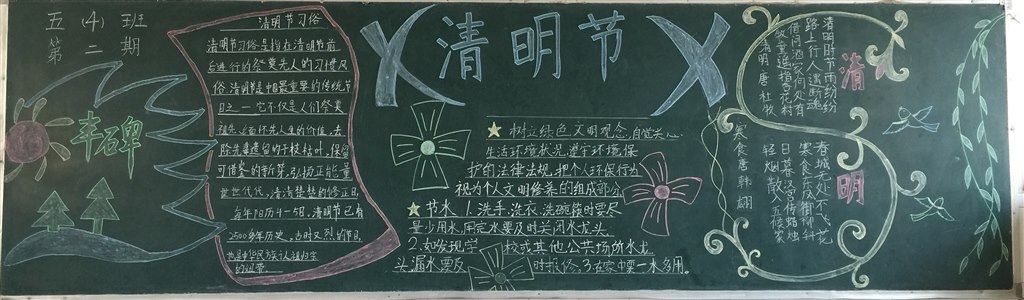 五（4）班
第二期
丰碑
清明节习俗
清明节习俗是指在清明节前
后进行的祭奠先人的习惯风
俗.清明节是中国最重要的传统节
日之一.它不仅是人们祭奠
祖先
世世代代,清清楚楚的修正日,
每年阳历4-5日,清明节已有
2500多年历史.
的纽带.
清明节
☆树立绿色文明观念,自觉关心
生活环境状况,遵守环境保
护的法律法规,把个人环保行为
视为个人文明修养的组成部分
☆节水 1.洗手、洗衣、洗碗筷时要尽
量少用水,用完水要及时关闭水龙头.
2.如发现学校或其他公共场所水龙
头漏水要及时报修.3.在家中要一水多用。
清明时节雨纷纷
路上行人欲断魂
借问酒家何处有
牧童遥指杏花村
清明 唐 杜牧
清
明
春城无处不飞花
寒食东风御柳斜
日暮汉宫传蜡烛
轻烟散入五侯家
寒食 唐 韩翃